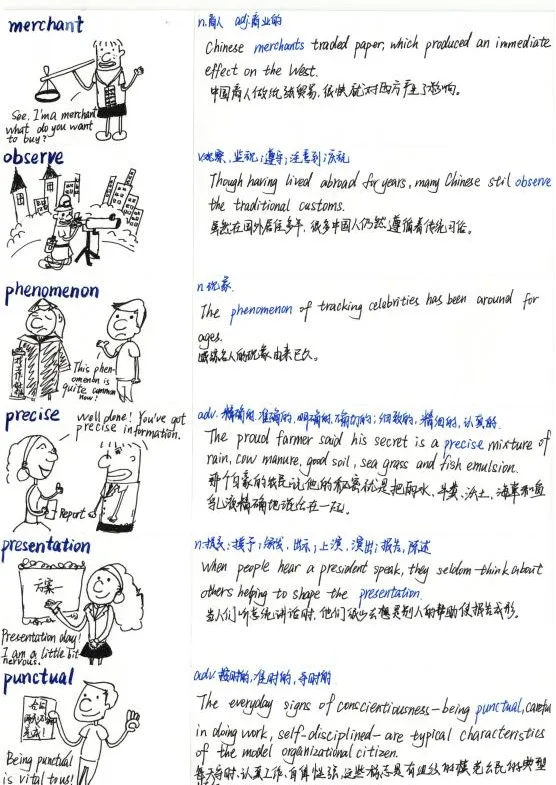 merchant
n.商人 adj.商业的
Chinese merchants traded paper, which produced an immediate
effect on the West.
中国商人做纸张贸易,很快就对西方产生了影响。
See. I'm a merchant
what do you want
to buy?
observe
v.观察、监视;遵守;注意到;庆祝
Though having lived abroad for years, many Chinese stil observe
the traditional customs.
虽然在国外居住多年,很多中国人仍然遵循着传统习俗。
phenomenon
n.现象
The phenomenon of tracking celebrities has been around for
ages.
追踪名人的现象由来已久。
This phen-
omenon is
quite common
now!
precise
well done! You've got
precise information.
Report
adv.精确的,准确的,明确的,确切的;细致的,精细的,认真的
The proud farmer said his secret is a precise mixture of
rain, cow manure, good soil, sea grass and fish emulsion.
那个自豪的农民说他的秘密就是把雨水、牛粪、沃土、海草和鱼
乳液精确地混合在一起。
presentation
方案
Presentation day!
I am a little bit
nervous.
n.授予;颁发,出示;上演,演出;报告,陈述
when people hear a president speak, they seldom think about
others helping to shape the presentation.
当人们听总统讲话时,他们很少会想是别人的帮助使报告成形。
punctual
Being punctual
is vital to us!
adv.按时的,准时的,守时的
The everyday signs of conscientiousness—being punctual, careful
in doing work, self-disciplined—are typical characteristics
of the model organizational citizen.
每天守时、认真工作、自律性强,这些标志是有组织的模范公民的典型